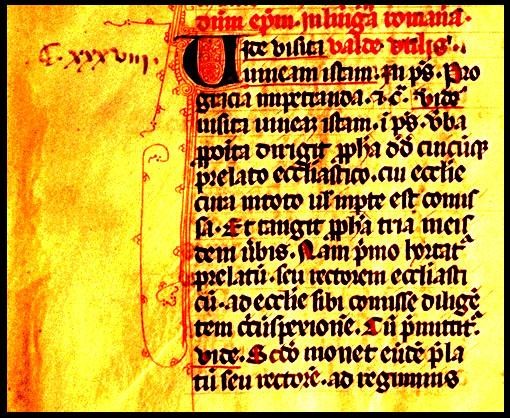 dum epm. in lingua romana.
C. xxxviij.
Iste visita valde utilis.
vineam istam. In ps. Pro
gracia impetranda. &c. vide
uisita uineam istam. i ps. v̄ba
ꝓpōita dirigit ꝓpħa dō cuicūqꝫ
prelato ecclīastico. cui ecclīe
cura in toto ul' in pte est cōmis
sa. Et tangit ꝓpħa tria in eis
dem v̄bis. Nam pͥmo hortat᷑
prelatū. seu rectorem ecclīasti
cū. ad ecclīe sibi cōmisse diligē
tem. Cū p̄mittit᷑.
vide. Scd̄o monet eūdē p̄la
tū seu rectorē. ad regiminis